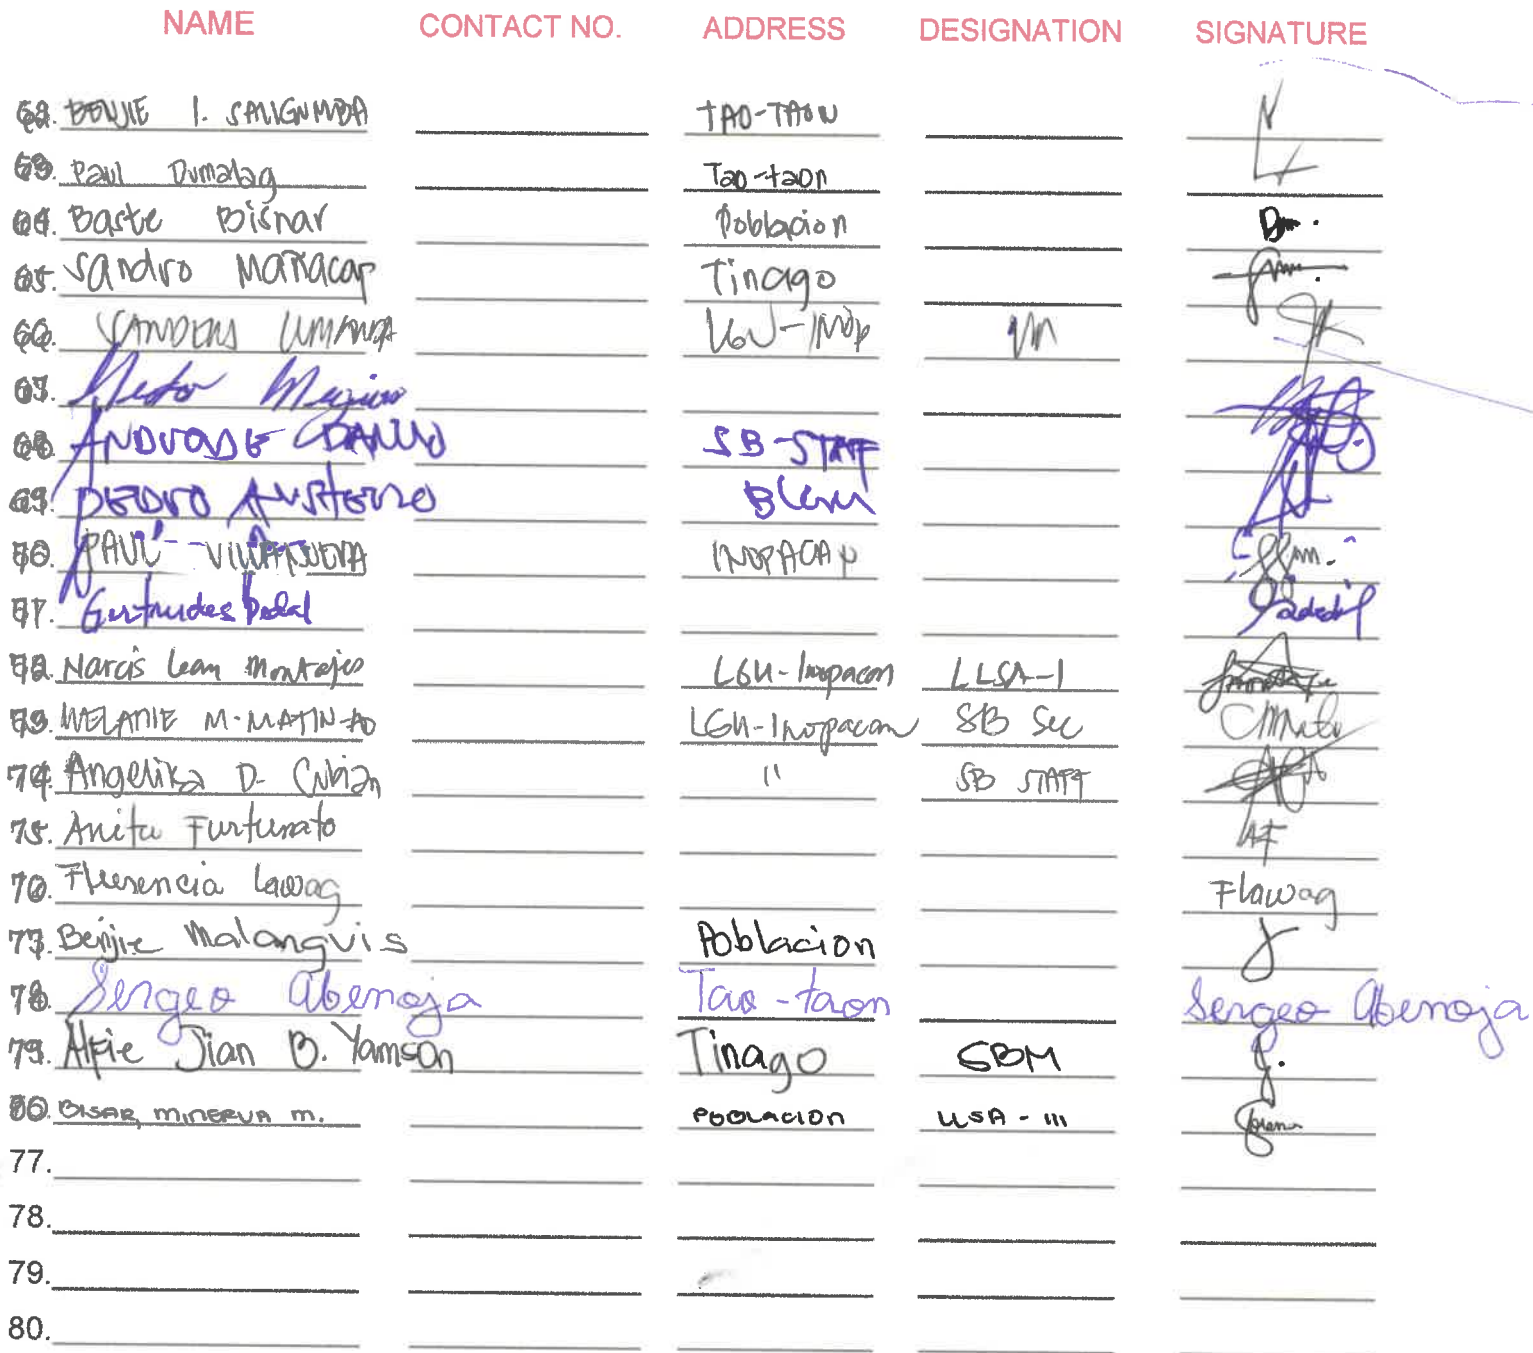 NAME CONTACT NO. ADDRESS DESIGNATION SIGNATURE
62. BENJIE I. SALIGUMBA TAO-TAON
63. Paul Dumalag Tao-taon
64. Baste Bisnar Poblacion
65. Sandro Mañacap Tinago
66. LGU-Inop
67. Nestor
68. SB-STAFF
69. PEDRO AUSTERO
70. PAUL VILLANUEVA INOPACAN
71. Gertrudes Dedal
72. Narcis Lean Montejo LGU-Inopacan LLSA-I
73. MELANIE M. MATIN-AO LGU-Inopacan SB Sec
74. Angelika D. Cubian " SB STAFF
75. Anita Furtunato AF
76. Flerencia Lawag Flawag
77. Benjie Malanguis Poblacion
78. Sergeo Abenoja Tao-taon Sergeo Abenoja
79. Alfie Jian B. Yamson Tinago SBM
80. BISAR, MINERVA M. POBLACION LLSA-III
77.
78.
79.
80.